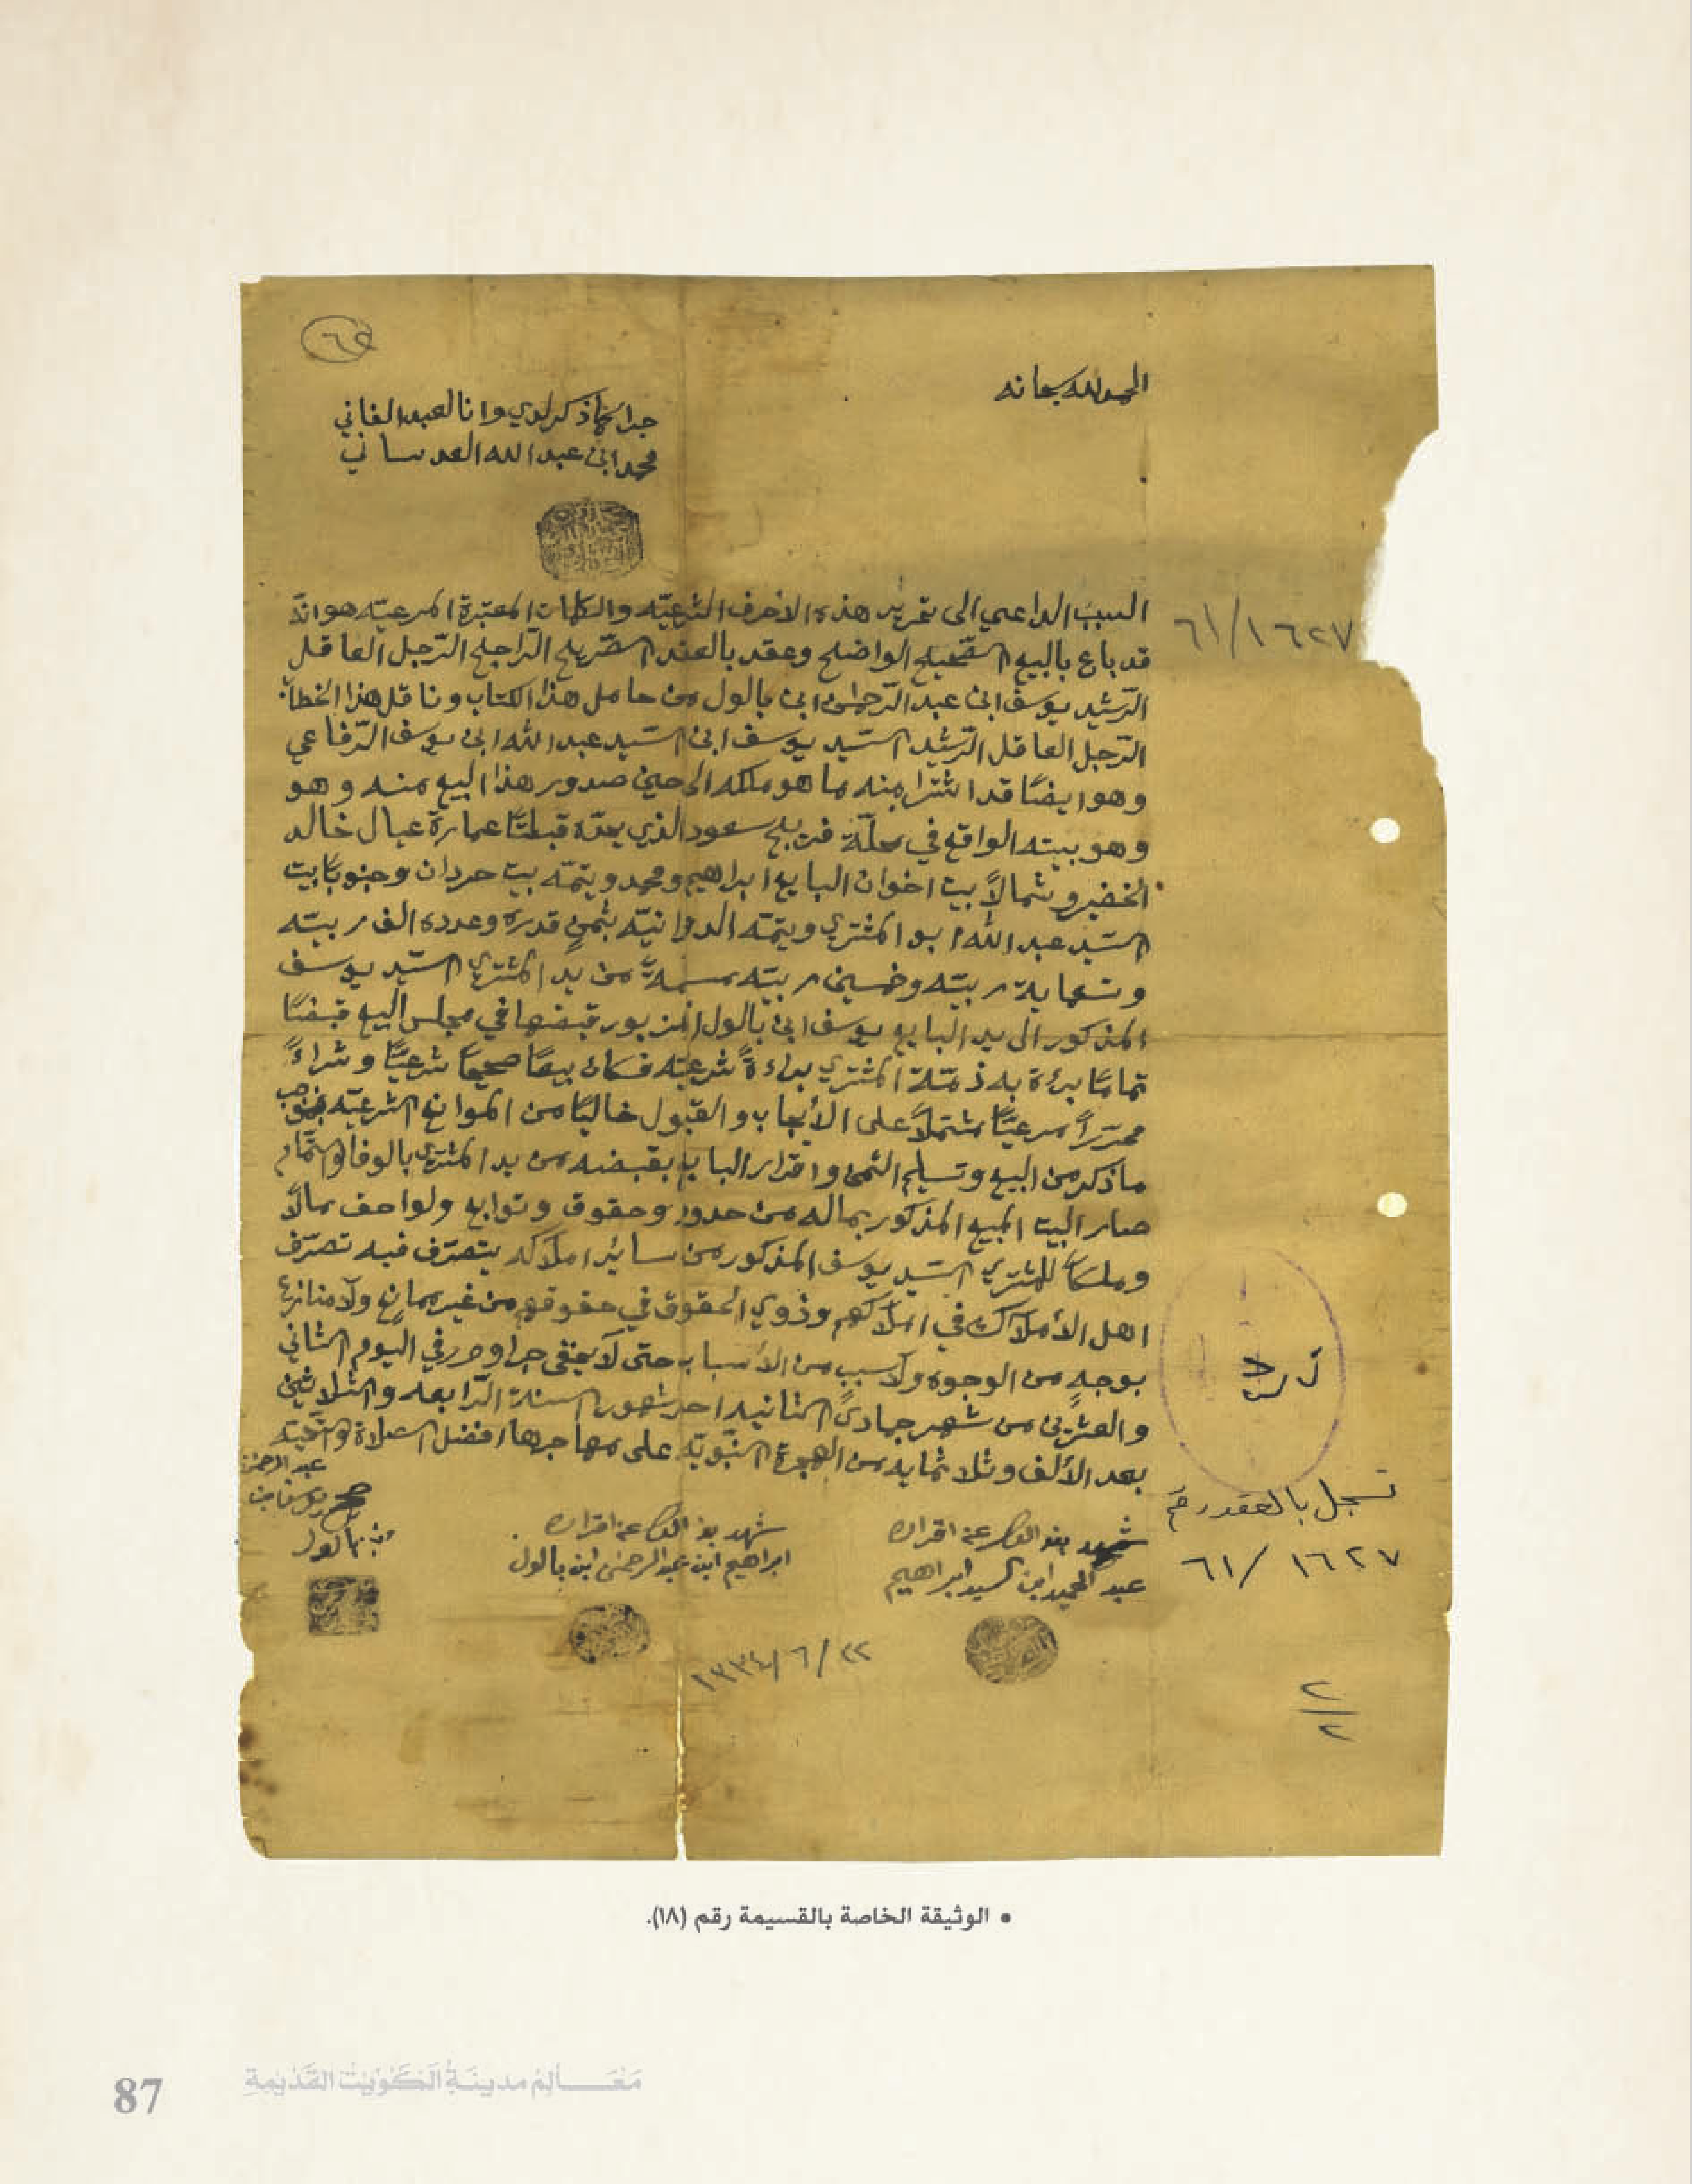 ٦٥
الحمد لله سبحانه
جرا كما ذكر لدي وانا العبد الفاني
محمد ابن عبد الله العدساني
السبب الداعي الى تحرير هذه الأحرف الشرعيّه والكلمات المعتبرة المرعيّه هو انّه
٦١/١٦٢٧
قد باع بالبيع الصّحيح الواضح وعقد بالعقد الصّريح الرّاجح الرّجل العاقل
الرّشيد يوسف ابن عبد الرّحمن ابن بالول من حامل هذا الكتاب وناقل هذا الخطاب
الرّجل العاقل الرّشيد السّيد يوسف ابن السّيد عبد الله ابن يوسف الرّفاعي
وهو ايضًا قد اشترا منه ما هو ملكه الى حين صدور هذا البيع منه وهو
وهو بيته الواقع في محلّة فريج سعود الذي يحدّه قبلتًا عمارة عيال خالد
الخضير وشمالاً بيت اخوان البايع ابراهيم ومحمد ويتمّه بيت حردان وجنوبًا بيت
السّيد عبد الله ابو المشتري ويتمّه الديوانيّه بثمنٍ قدره وعدده الف ربيّه
وتسعماية ربيّه وخمسين ربيّه مسلمةً من يد المشتري السّيد يوسف
المذكور الى يد البايع يوسف ابن بالول المزبور قبضها في مجلس البيع قبضًا
تمامًا برءة به ذمّة المشتري براءةً شرعيّه فكان بيعًا صحيحًا شرعيًّا وشراءً
محرّراً مرعيًّا مشتملاً على الأيجاب والقبول خاليًا من الموانع الشرعيّه فبموجب
ما ذكر من البيع وتسليم الثمن واقرار البايع بقبضه من يد المشتري بالوفا والتّمام
صار البيت المبيع المذكور بماله من حدود وحقوق وتوابع ولواحق مالاً
وملكاً للمشتري السّيد يوسف المذكور من ساير املاكه يتصرّف فيه تصرّف
اهل الأملاك في املاكهم وذوي الحقوق في حقوقهم من غير ممانعٍ ولا منازعٍ
بوجهٍ من الوجوه ولا سبب من الأسباب حتى لا يخفى جرا وحرر في اليوم الثاني
والعشرين من شهر جمادى الثانيه احد شهور السنة الرّابعه والثلاثين
بعد الألف وثلاثمايه من الهجرة النّبويّه على مهاجرها افضل الصلاة والتّحيّه
شهد بذالك عن اقراره
عبد الحميد ابن السيد ابراهيم
شهد بذالك عن اقراره
ابراهيم ابن عبد الرحمن ابن بالول
صح يوسف بن
عبد الرحمن
بن بالول
تسجل بالعقد رقم
٦١/ ١٦٢٧
١٣٣٤/٦/٢٢
٢/٢
• الوثيقة الخاصة بالقسيمة رقم (١٨).
مَعَالِمُ مدينَةِ الكُوَيْت القَدْيمةِ
87